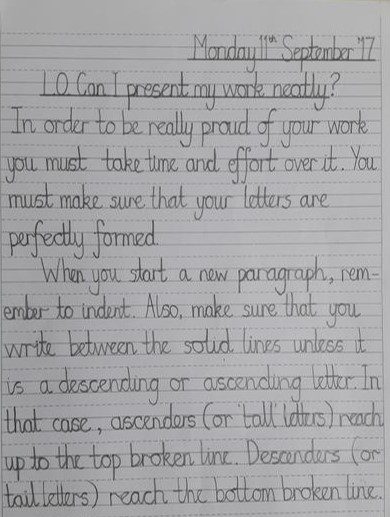 Monday 11th September '17
L.O Can I present my work neatly?
In order to be really proud of your work
you must take time and effort over it. You
must make sure that your letters are
perfectly formed.
When you start a new paragraph, rem-
ember to indent. Also, make sure that you
write between the solid lines unless it
is a descending or ascending letter. In
that case, ascenders (or 'tall' letters) reach
up to the top broken line. Descenders (or
tail letters) reach the bottom broken line.